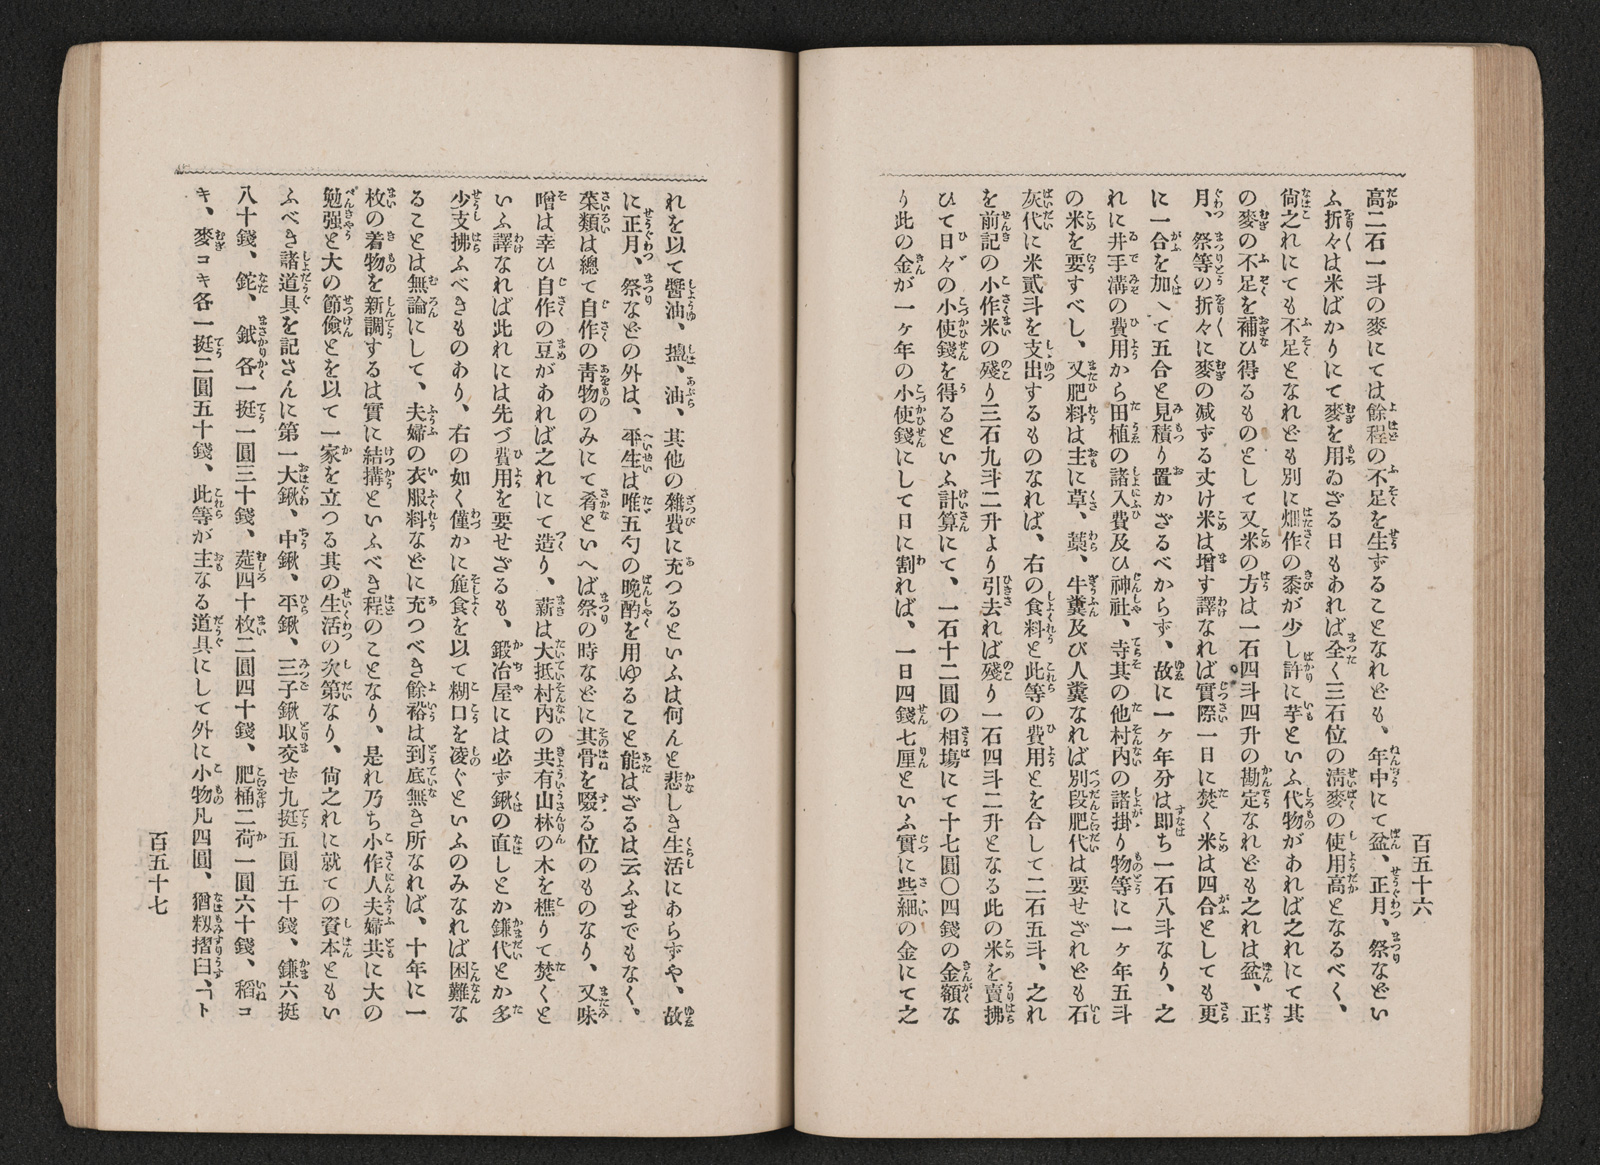 百五十六
高二石一斗の麥にては餘程の不足を生ずることなれども、年中にて盆、正月、祭などい
ふ折々は米ばかりにて麥を用ゐざる日もあれば全く三石位の淸麥の使用高となるべく、
尙之れにても不足となれども別に畑作の黍が少し許に芋といふ代物があれば之れにて其
の麥の不足を補ひ得るものとして又米の方は一石四斗四升の勘定なれども之れは盆、正
月、祭等の折々に麥の减ずる丈け米は增す譯なれば實際一日に焚く米は四合としても更
に一合を加へて五合と見積り置かざるべからず、故に一ヶ年分は即ち一石八斗なり、之
れに井手溝の費用から田植の諸入費及ひ神社、寺其の他村內の諸掛り物等に一ヶ年五斗
の米を要すべし、又肥料は主に草、藁、牛糞及び人糞なれば別段肥代は要せざれども石
灰代に米貳斗を支出するものなれば、右の食料と此等の費用とを合して二石五斗、之れ
を前記の小作米の殘り三石九斗二升より引去れば殘り一石四斗二升となる此の米を賣拂
ひて日々の小使錢を得るといふ計算にて、一石十二圓の相塲にて十七圓〇四錢の金額な
り此の金が一ヶ年の小使錢にして日に割れば、一日四錢七厘といふ實に些細の金にて之
れを以て醬油、鹽、油、其他の雜費に充つるといふは何んと悲しき生活にあらずや、故
に正月、祭などの外は、平生は唯五勺の晚酌を用ゆること能はざるは云ふまでもなく、
菜類は總て自作の靑物のみにて肴といへば祭の時などに其骨を啜る位のものなり、又味
噌は幸ひ自作の豆があれば之れにて造り、薪は大抵村內の共有山林の木を樵りて焚くと
いふ譯なれば此れには先づ費用を要せざるも、鍛冶屋には必ず鍬の直しとか鎌代とか多
少支拂ふべきものあり、右の如く僅かに麁食を以て糊口を凌ぐといふのみなれば困難な
ることは無論にして、夫婦の衣服料などに充つべき餘裕は到底無き所なれば、十年に一
枚の着物を新調するは實に結搆といふべき程のことなり、是れ乃ち小作人夫婦共に大の
勉强と大の節儉とを以て一家を立つる其の生活の次第なり、尙之れに就ての資本ともい
ふべき諸道具を記さんに第一大鍬、中鍬、平鍬、三子鍬取交ぜ九挺五圓五十錢、鎌六挺
八十錢、鉈、鉞各一挺一圓三十錢、莚四十枚二圓四十錢、肥桶二荷一圓六十錢、稻コ
キ、麥コキ各一挺二圓五十錢、此等が主なる道具にして外に小物凡四圓、猶籾摺臼、コト
百五十七